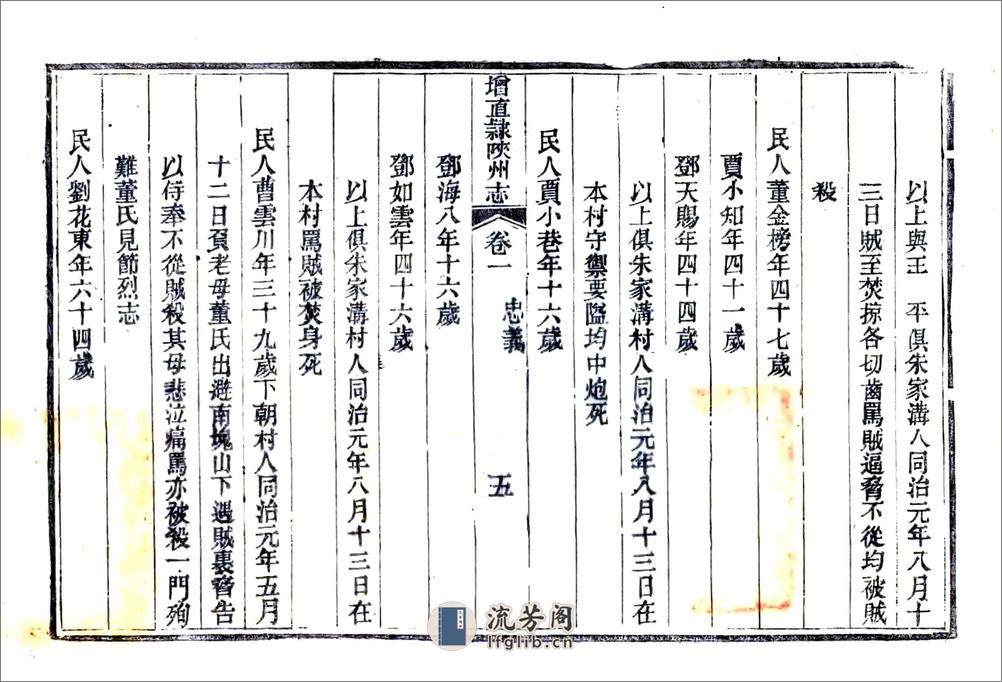 以上與王　平俱朱家溝人同治元年八月十
三日賊至焚掠各切齒罵賊逼脅不從均被賊
殺
民人董金榜年四十七歲
賈小知年四十一歲
鄧天賜年四十四歲
以上俱朱家溝村人同治元年八月十三日在
本村守禦要隘均中炮死
民人賈小巷年十六歲
增直隸陝州志　卷一　忠義　五
鄧海八年十六歲
鄧如雲年四十六歲
以上俱朱家溝村人同治元年八月十三日在
本村罵賊被焚身死
民人曹雲川年三十九歲下朝村人同治元年五月
十二日負老母董氏出避南塊山下遇賊裹脅告
以侍奉不從賊殺其母悲泣痛罵亦被殺一門殉
難董氏見節烈志
民人劉花東年六十四歲
流芳阁
lfglib.cn